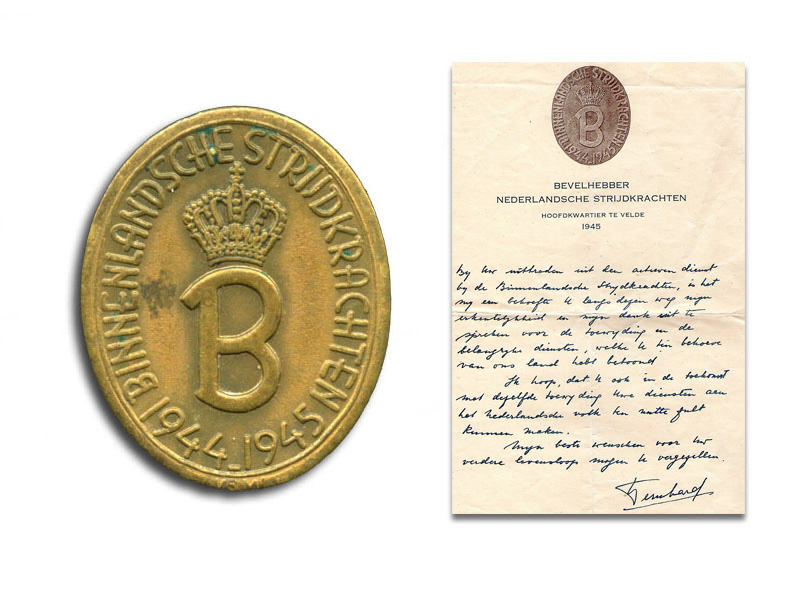 BINNENLANDSCHE STRIJDKRACHTEN
B
1944-1945
BINNENLANDSCHE STRIJDKRACHTEN
B
1944-1945
BEVELHEBBER
NEDERLANDSCHE STRIJDKRACHTEN
HOOFDKWARTIER TE VELDE
1945
By Uw uittreden uit den actieven dienst
by de Binnenlandsche Strydkrachten, is het
my een behoefte U langs dezen weg myn
erkentelykheid en myn dank uit te
spreken voor de toewyding en de
belangryke diensten, welke U ten behoeve
van ons land hebt betoond
Ik hoop, dat U ook in de toekomst
met dezelfde toewyding Uwe diensten aan
het Nederlandsche volk ten nutte zult
kunnen maken.
Myn beste wenschen voor Uw
verdere levensloop mogen U vergezellen.
Bernhard